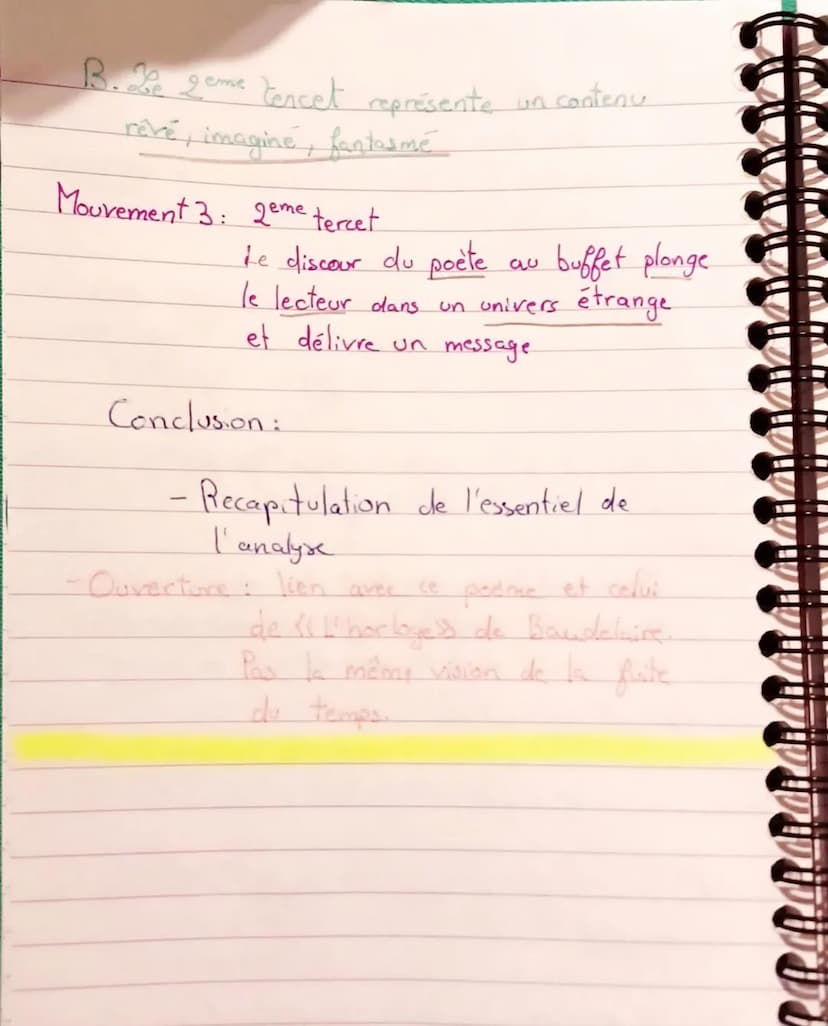 B. Le 2eme tercet représente un contenu
rêvé, imaginé, fantasmé
Mouvement 3: 2eme tercet
Le discour du poète au buffet plonge
le lecteur dans un univers étrange
et délivre un message
Conclusion:
- Recapitulation de l'essentiel de
l'analyse
- Ouverture: lien avec ce poème et celui
de «L'horloge» de Baudelaire.
Pas la même vision de la fuite
du temps.